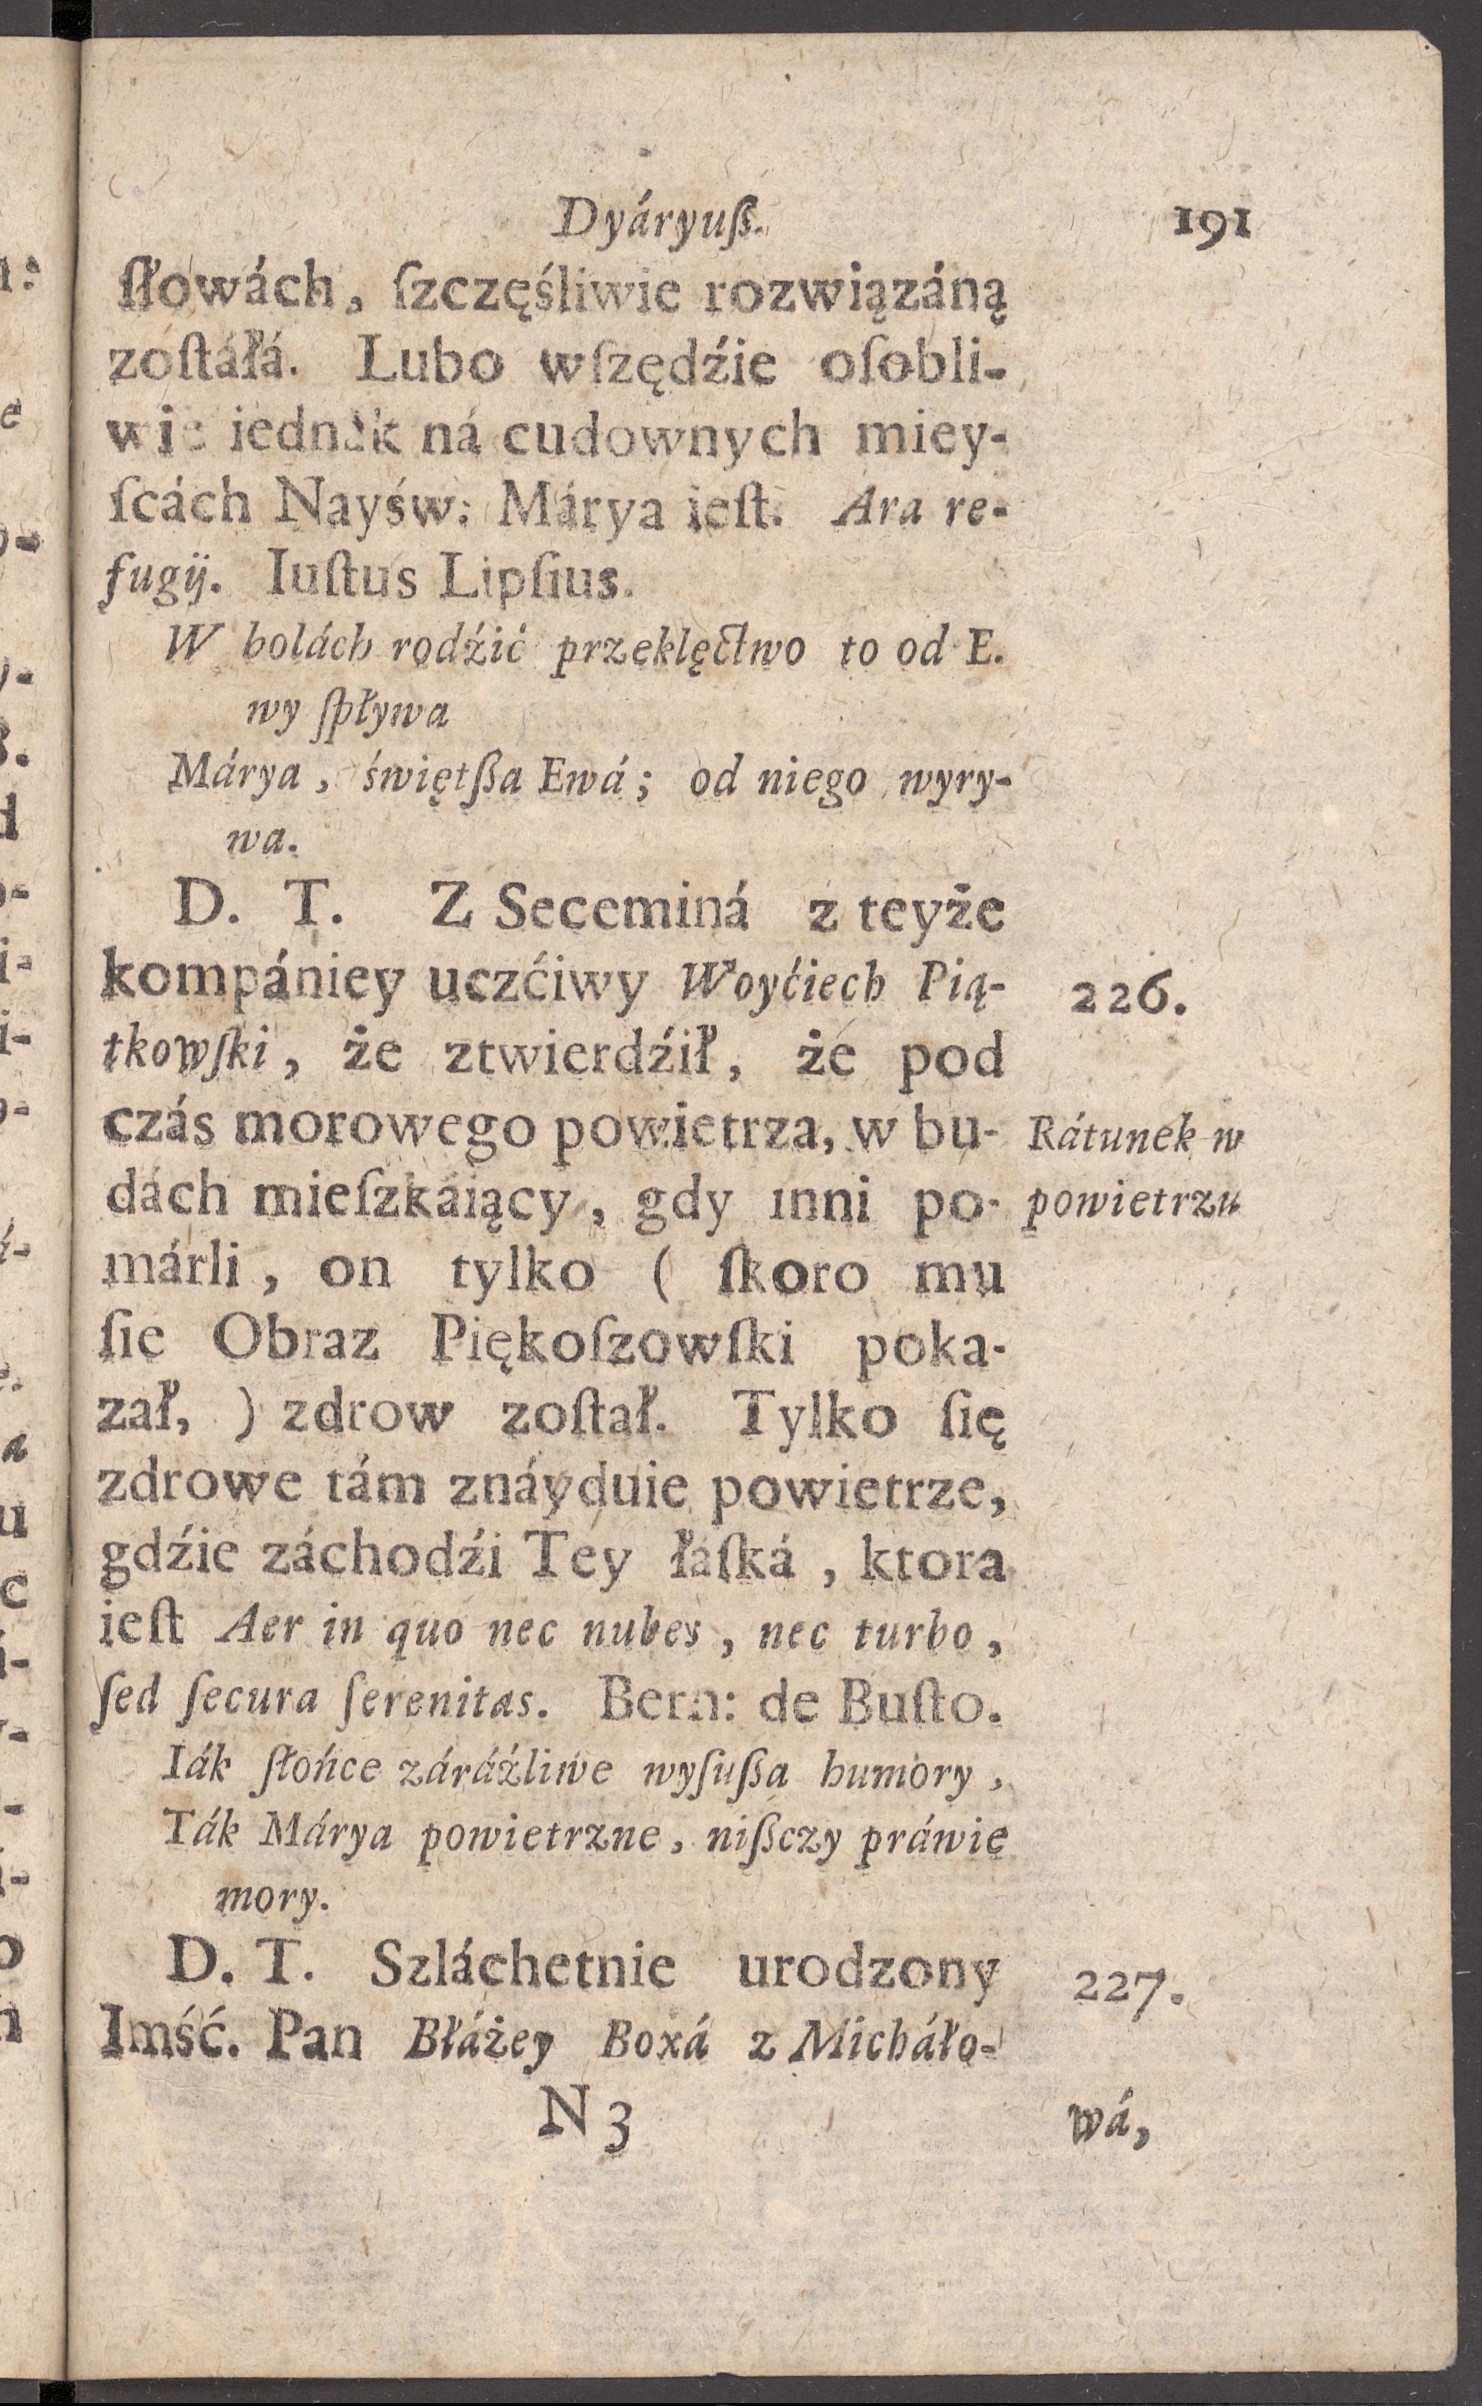 Dyáryuſß. 191
ſłowách, ſzczęśliwie rozwiązáną
zoſtáłá. Lubo wſzędźie oſobli-
wie iednák ná cudownych miey-
ſcách Nayśw: Márya ieſt. Ara re-
fugij. Iuſtus Lipſius.
W bolách rodźić przeklęctwo to od E.
wy ſpływa
Márya, świętßa Ewá; od niego wyry-
wa.
D. T. Z Seceminá z teyże
kompániey uczćiwy Woyćiech Pią-
226.
tkowſki, że ztwierdźił, że pod
czás morowego powietrza, w bu-
Rátunek w
dách mieſzkáiący, gdy inni po-
powietrzu
márli, on tylko ( ſkoro mu
ſie Obraz Piękoſzowſki poka-
zał, ) zdrow zoſtał. Tylko ſię
zdrowe tám znáyduie powietrze,
gdźie záchodźi Tey łáſká, ktora
ieſt Aer in quo nec nubes, nec turbo,
ſed ſecura ſerenitas. Bern: de Buſto.
Iák ſłońce zaráźliwe wyſußa humory,
Ták Márya powietrzne, nißczy práwie
mory.
D. T. Szláchetnie urodzony
227.
Imść. Pan Błáżey Boxá z Micháło-
N 3
wá,